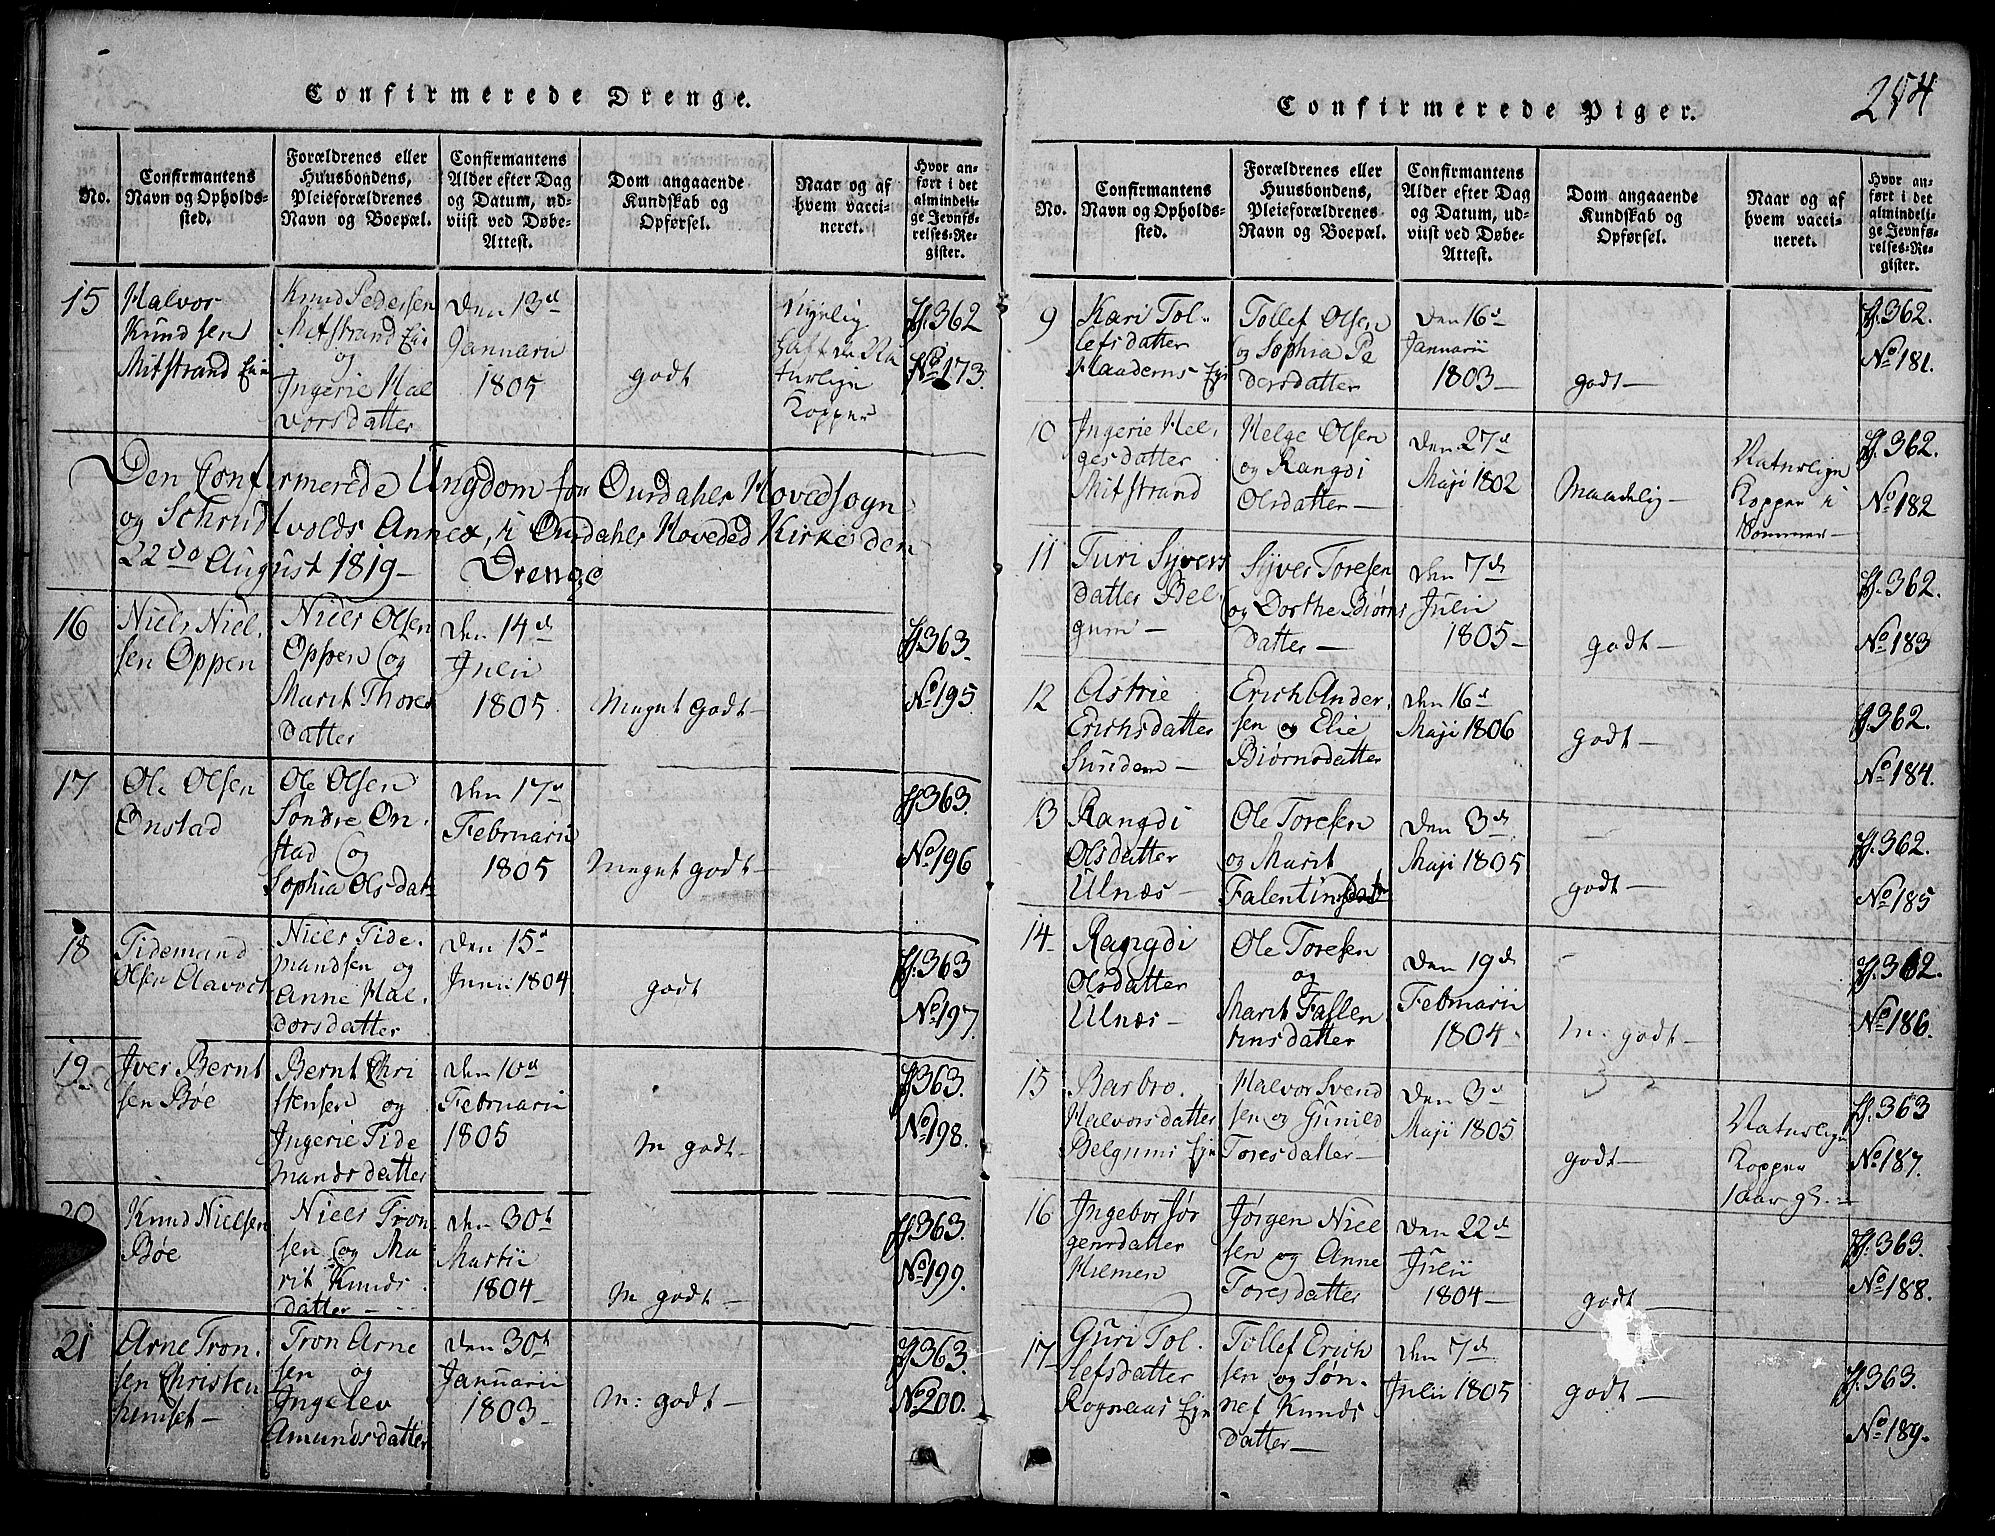 Confirmerede Drenge.
No.
Confirmantens
Navn og Opholds-
sted.
Forældrenes eller
Huusbondens,
Pleieforældrenes
Navn og Boepæl.
Confirmantens
Alder efter Dag
og Datum, ud-
viist ved Døbe-
Attest.
Dom angaaende
Kundskab og
Opførsel.
Naar og af
hvem vacci-
neret.
Hvor an-
ført i det
almindeli-
ge Jevnfø-
relses-Re-
gister.
15
Halvor
Knudsen
Mitstrand Eie
Knud Pedersen
Mitstrand Eie
og
Ingerie Hal
vorsdatter
Den 13d
Januarii
1805
godt
haft de Na
turlige
Kopper
S. 362
No 173.
Den Confirmerede Ungdom for Ourdahls Hovedsogn
og Schrud volds Annex, i Ourdahls Hoveded Kirke den
22do August 1819-
Drenge
16
Niels Niel-
sen Oppen
Niels Olsen
Oppen og
Marit Thores
datter
Den 14d
Julii
1805
Meget godt-
S. 363.
No 195
17
Ole Olsen
Onstad
Ole Olsen
Søndre On-
stad og
Sophia Olsdat-
Den 17d
Februarii
1805
Meget godt-
S. 363.
No 196
18
Tidemand
Olsen
Niels Tide-
mandsen og
Anne Hal-
dorsdatter
Den 15d
Junii 1804
godt
S. 363
No 197.
19
Iver Bernt
sen Bøe
Bernt Chri
stensen og
Ingerie Tide
mandsdatter
Den 10d
Februarii
1805
M godt-
S. 363.
No 198.
20
Knud Nielsen
Bøe
Niels Tron
sen og Ma
rit Knuds
datter-
Den 30t
Martii
1804-
M godt-
S. 363.
No 199.
21
Arne Tron-
sen Christen
huuset-
Tron Arne
sen og
Ingelev
Amundsdatter
Den 30t
Januarii
1803-
M: godt-
S. 363.
No 200.
254
Confirmerede Piger.
No.
Confirmantens
Navn og Opholds-
sted.
Forældrenes eller
Huusbondens,
Pleieforældrenes
Navn og Boepæl.
Confirmantens
Alder efter Dag
og Datum, ud-
viist ved Døbe-
Attest.
Dom angaaende
Kundskab og
Opførsel.
Naar og af
hvem vacci-
neret.
Hvor an-
ført i det
almindeli-
ge Jevnfø-
relses-Re-
gister.
9
Kari Tol-
lefsdatter
Haaderns Eje
Tollef Olsen
og Sophia Pe
dersdatter
Den 16d
Januarii
1803-
godt-
S. 362.
No 181.
10
Ingerie Hel-
gesdatter
Mitstrand
Helge Olsen
og Rangdi
Olsdatter-
Den 27d
Maji 1802
Maadelig-
Naturlige
Kopper i
Sommer-
S. 362.
No 182
11
Turi Syvers
datter Bel-
gum-
Syver Toresen
og Dorthe Biørns
datter-
Den 7d
Julii
1805-
godt-
S. 362.
No 183
12
Astrie
Erichsdatter
Sundem-
Erich Ander-
sen og Elie
Biørnsdatter
Den 16d
Maji 1806
godt-
S. 362.
No 184.
13
Rangdi
Olsdatter
Ulnæs-
Ole Toresen
og Marit
Falentinsdatr
Den 3d
Maji 1805
godt-
S. 362.
No 185
14
Rangdi
Olsdatter
Ulnæs-
Ole Toresen
og
Marit Fallen
tinsdatter
Den 19d
Februarii
1804-
M: godt-
S. 362.
No 186.
15
Barbro
Halvorsdatter
Belgums Eje
Halvor Svend
sen og Gunild
Toresdatter-
Den 3d
Maji 1805
godt-
Naturlige
Kopper
1 aar gl.-
S. 363
No 187.
16
Ingebor Jør
gensdatter
Hilmen
Jørgen Niel
sen og Anne
Toresdatter
Den 22d
Julii
1804-
godt-
S. 363.
No 188.
17
Guri Tol-
lefsdatter
Rognaas Eje
Tollef Erich
sen og Søn-
nef Knuds
datter-
Den 7d
Julii 1805
godt-
S. 363.
No 189.